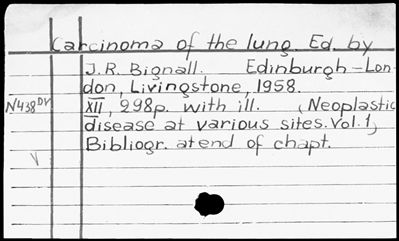 Carcinoma of the lung. Ed. by
J.R. Bignall. Edinburgh-Lon-
don, Livingstone, 1958.
N438DV
XII, 298p. with ill. (Neoplastic
disease at various sites. Vol. 1)
Bibliogr. at end of chapt.